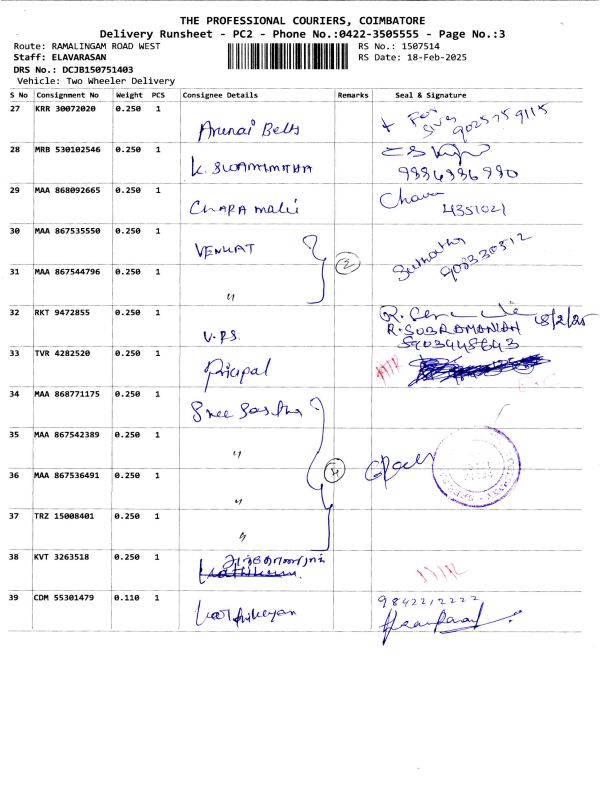 THE PROFESSIONAL COURIERS, COIMBATORE
Delivery Runsheet - PC2 - Phone No.:0422-3505555 - Page No.:3
Route: RAMALINGAM ROAD WEST RS No.: 1507514
Staff: ELAVARASAN RS Date: 18-Feb-2025
DRS No.: DCJB150751403
Vehicle: Two Wheeler Delivery
S No Consignment No Weight PCS Consignee Details Remarks Seal & Signature
27 KRR 30072020 0.250 1
Arunai Belts 9025759115
28 MRB 530102546 0.250 1
K. SWAMINATHA
29 MAA 868092665 0.250 1
4351021
30 MAA 867535550 0.250 1
VENKAT 2
31 MAA 867544796 0.250 1
"
32 RKT 9472855 0.250 1
V.P.S. R. SUBRAMANIAN 18/2/25
5903448643
33 TVR 4282520 0.250 1
34 MAA 868771175 0.250 1
Sree Sastha
35 MAA 867542389 0.250 1
" 4
36 MAA 867536491 0.250 1
"
37 TRZ 15008401 0.250 1
"
38 KVT 3263518 0.250 1
39 CDM 55301479 0.110 1
Karthikeyan 9842212222